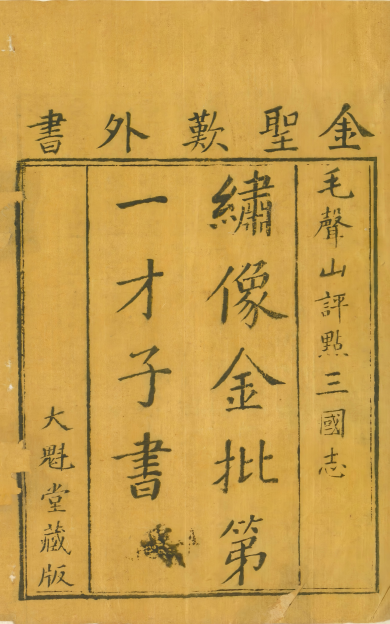 金聖歎外書
毛聲山評點三國志
繡像金批第
一才子書
大魁堂藏版